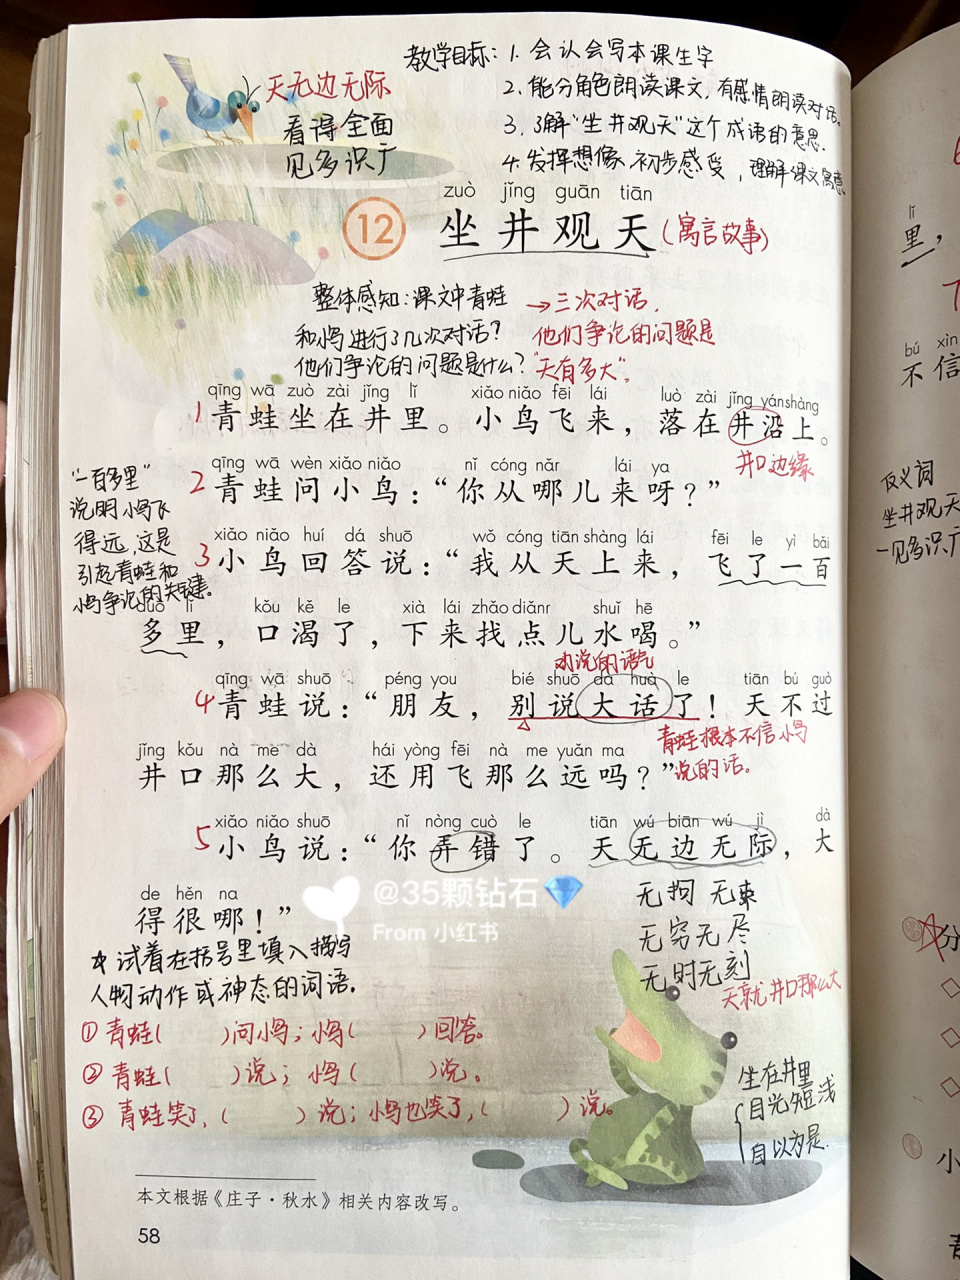 教学目标：1. 会认会写本课生字
2. 能分角色朗读课文，有感情朗读对话。
3. 了解“坐井观天”这个成语的意思.
4. 发挥想像，初步感受，理解课文寓意.
天无边无际
看得全面
见多识广
zuò jǐng guān tiān
12 坐井观天（寓言故事）
整体感知：课文中青蛙
和小鸟进行了几次对话？
他们争论的问题是什么？
→三次对话，
他们争论的问题是
“天有多大”。
qīng wā zuò zài jǐng lǐ xiǎo niǎo fēi lái luò zài jǐng yán shàng
1 青蛙坐在井里。小鸟飞来，落在井沿上。
井口边缘
qīng wā wèn xiǎo niǎo nǐ cóng nǎr lái ya
2 青蛙问小鸟：“你从哪儿来呀？”
“一百多里”
说明小鸟飞
得远，这是
引起青蛙和
小鸟争论的关键。
xiǎo niǎo huí dá shuō wǒ cóng tiān shàng lái fēi le yì bǎi
3 小鸟回答说：“我从天上来，飞了一百
duō lǐ kǒu kě le xià lái zhǎo diǎnr shuǐ hē
多里，口渴了，下来找点儿水喝。”
qīng wā shuō péng you bié shuō dà huà le tiān bú guò
4 青蛙说：“朋友，别说大话了！天不过
青蛙根本不信小鸟
说的话。
jǐng kǒu nà me dà hái yòng fēi nà me yuǎn ma
井口那么大，还用飞那么远吗？”
xiǎo niǎo shuō nǐ nòng cuò le tiān wú biān wú jì dà
5 小鸟说：“你弄错了。天无边无际，大
de hěn na
得很哪！”
无拘无束
无穷无尽
无时无刻
天就井口那么大
☆试着在括号里填入描写
人物动作或神态的词语.
① 青蛙（ ）问小鸟；小鸟（ ）回答。
② 青蛙（ ）说；小鸟（ ）说。
③ 青蛙笑了，（ ）说；小鸟也笑了，（ ）说。
坐在井里
目光短浅
自以为是.
本文根据《庄子·秋水》相关内容改写。
58
@35颗钻石💎
From 小红书
lǐ
里，
bú xìn
不信
反义词
坐井观天
—见多识广
分
小